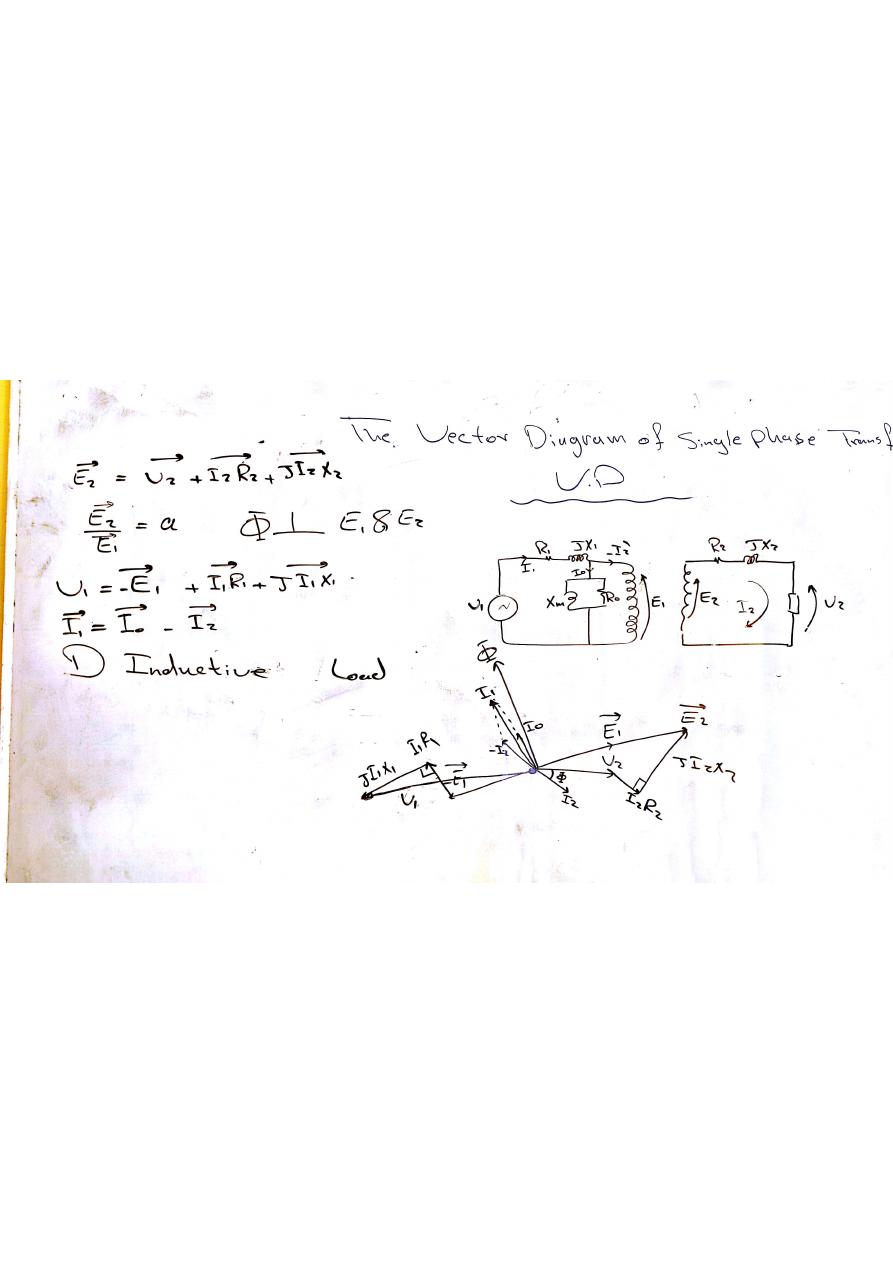 The Vector Diagram of Single Phase Transf
V.D
E₂ = U₂ + I₂R₂ + JI₂X₂
E₂/E₁ = a Φ⊥ E₁ & E₂
U₁ = -E₁ + I₁R₁ + JI₁X₁.
I₁ = I₀ - I₂
1) Inductive Load
R₁ JX₁ -I₂' R₂ JX₂
I₁ I₀
U₁ Xm R₀ E₁ E₂ I₂ U₂
Φ
I₁ I₀ E₁ E₂
I₁R₁ -I₂ U₂ JI₂X₂
JI₁X₁ E₁ Φ
U₁ I₂ I₂R₂